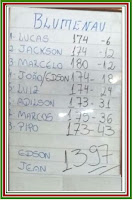 BLUMENAU
1- LUCAS 174 -6
2 JACKSON 174 -12
3 MARCELO 180 -12
1- JOÃO/EDSON 174 - 18
2 LUIZ 174 - 24
3 ADILSON 173 - 31
MARCOS 175 - 36
PIPO 173 - 43
EDSON 1397
JEAN